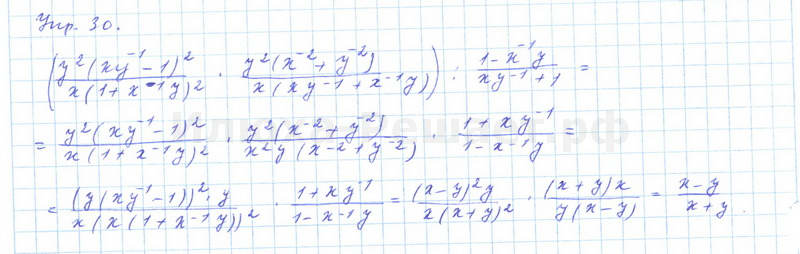 Упр. 30.
(y²(xy⁻¹-1)²/x(1+x⁻¹y)² · y²(x⁻²+y⁻²)/x(xy⁻¹+x⁻¹y)) : 1-x⁻¹y/xy⁻¹+1 =
= y²(xy⁻¹-1)²/x(1+x⁻¹y)² · y²(x⁻²+y⁻²)/x²y(x⁻²+y⁻²) · 1+xy⁻¹/1-x⁻¹y =
= (y(xy⁻¹-1))²·y/x(x(1+x⁻¹y))² · 1+xy⁻¹/1-x⁻¹y = (x-y)²y/x(x+y)² · (x+y)x/y(x-y) = x-y/x+y